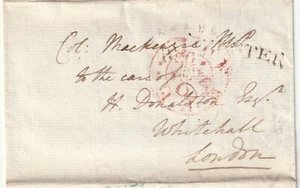 Col: Mackenzie
to the care of
H. Donaldson Esqr.
Whitehall
London